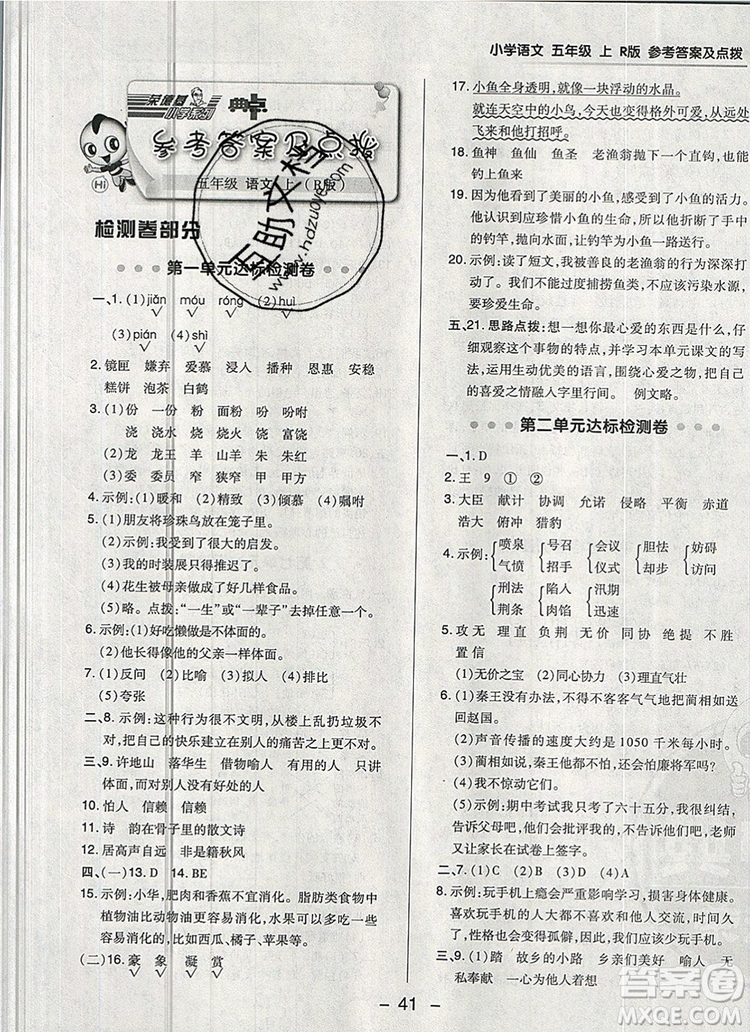 小学语文 五年级 上 R版 参考答案及点拨
荣德基
小学系列
典点
参考答案及点拨
五年级 语文 上（R版）
Hi
互助文档
www.hdzuoye.com
检测卷部分
第一单元达标检测卷
一、1. (1)jiǎn móu róng (2)huì
(3)pián (4)shì
2. 镜匣 嫌弃 爱慕 浸入 播种 恩惠 安稳
糕饼 泡茶 白鹤
3. (1)份 一份 粉 面粉 吩 吩咐
浇 浇水 烧 烧火 饶 富饶
(2)龙 龙王 龙 山龙 朱 朱红
(3)委 委员 窄 狭窄 甲 甲方
4. 示例：(1)暖和 (2)精致 (3)倾慕 (4)嘱咐
5. (1)朋友将珍珠鸟放在笼子里。
(2)示例：我受到了很大的启发。
(3)我的时装展只得推迟了。
(4)花生被母亲做成了好几样食品。
(5)略。点拨：“一生”或“一辈子”去掉任意一个。
6. 示例：(1)好吃懒做是不体面的。
(2)他长得像他的父亲一样体面。
7. (1)反问 (2)比喻 (3)拟人 (4)排比
(5)夸张
二、8. 示例：这种行为很不文明，从楼上乱扔垃圾不同
于把自己的快乐建立在别人的痛苦之上吗？
三、9. 许地山 落华生 借物喻人 有用 只讲
体面，而对别人没有好处
10. 怕人 信赖 信赖
11. 诗 韵在骨子里的散文诗
12. 居高声自远 非是籍秋风
四、(一)13. D 14. BE
15. 示例：小华，肥肉和香蕉不宜吃。脂肪类食物中
植物油比动物油好一些，应多吃些含水量多一些
的水果，比如西瓜、橘子、苹果等。
(二)16. 豪 象 凝 赏
17. 小鱼全身透明，就像一块浮动的水晶。
就连天空中的小鸟，今天也变得格外可爱，从远处
飞来和他打招呼。
18. 鱼神 鱼仙 鱼圣 老渔翁放下一个直钩，他
能钓到鱼。
19. 示例：因为他看到了美丽的小鱼，感受到了生命的活力。
他认识到应珍惜小鱼的生命，所以他折断了手中
的钓竿，放下水面，让钓竿与小鱼一路远行。
20. 示例：读了短文，我被善良的老渔翁深深打
动了。我们不要随意捕捞鱼类，不应该污染水源，
要珍爱生命。
五、21. 思路点拨：想一想你最心爱的东西是什么，仔
细观察这个事物的特点，并学习本单元课文的写
法，运用生动优美的语言，围绕心爱之物，把自己
的喜爱之情融入字里行间。 例文略。
第二单元达标检测卷
一、1. D
2. 王 9 ① ②
3. 大臣 献计 协调 允诺 侵略 平衡 赤道
浩大 俯冲 猎豹
4. 示例：喷泉 号召 会议 胆怯 妨碍
气愤 招手 仪式 却步 访问
刑法 陷入 汛期
荆条 肉馅 迅速
5. 攻 无 理直 负荆 无价 同协 绝提 不胜
置信
(1)无价之宝 (2)同心协力 (3)理直气壮
6. (1)秦王没有办法，不得不客客气气地把蔺相如送
回赵国。
(2)声音传播的速度大约是 1050 千米每小时。
(3)蔺相如的功劳很大。
(4)我赞叹大自然的鬼斧神工。
(5)示例：期中考试我考了六十五分，我很害怕
告诉父母，但为了做一个诚实的好孩子，回家后，我
又让家长在试卷上签字。
二、7. (1)C (2)D (3)D (4)A
8. 示例：玩手机上瘾会严重影响学习，损害身体健康。
喜欢玩手机的人，视力会下降，与人交流会减少，
性格会变得孤僻，所以，我们应该少玩手机。
三、9. (1)踏 故乡的小路 乡亲们美好 喻人 无
私奉献 一心一意为他人着想
- 41 -
答案圈